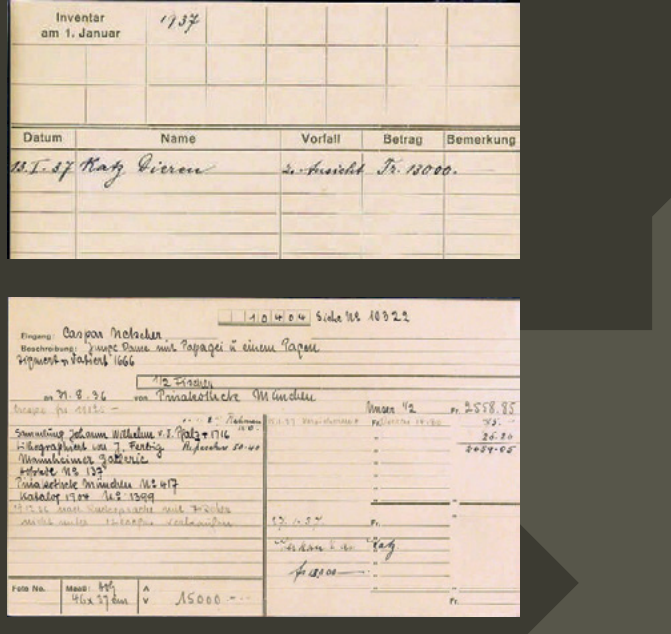 Inventar
am 1. Januar
1937
Datum Name Vorfall Betrag Bemerkung
13.I.37 Katz Dieren z. Ansicht Fr. 13000.
10404 Siehe No 10322
Eingang: Caspar Netscher
Beschreibung: Junge Dame mit Papagei u einem Pagen
signiert u datiert 1666
1/2 Fischer
am 31.8.36 von Pinakothek München
Unser 1/2 Fr. 2558.85
Rahmen
75.-
Sammlung Johann Wilhelm v.d. Pfalz + 1716
26.20
Lithographiert von J. Fertig
50.40
Mannheimer Gallerie
No 137
Pinakothek München No 417
Katalog 1904 No 1399
nach Rücksprache mit Fischer
nicht unter verkaufen
27.1.37. Fr.
Katz
fr
Foto No. Maaß: A
V
46 x 37 cm 15000.--
Fr.